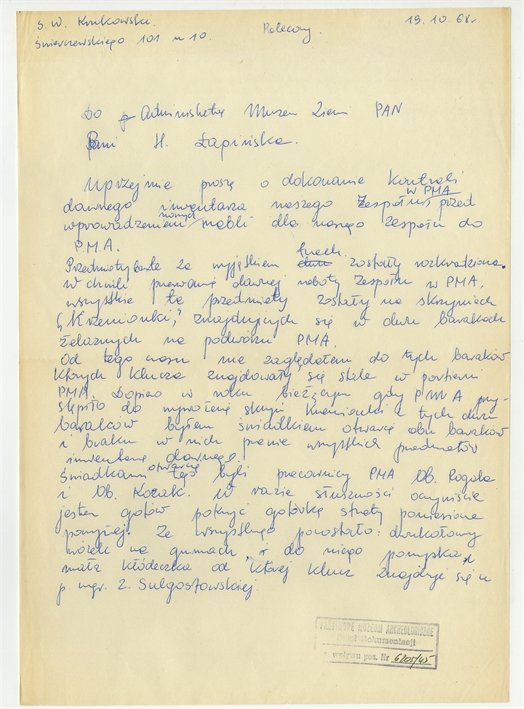 S. W. Krukowski. 19.10.68r.
Świerczewskiego 101 m 10. Polecony
Do Administracji Muzeum Ziemi PAN
Pani H. Łapińska.
Uprzejmie proszę o dokonanie kontroli
dawnego inwentarza naszego Zespołu w PMA przed
wprowadzeniem nowych mebli dla naszego zespołu do
PMA.
Przedmioty te za wyjątkiem trzech zostały rozkradzione.
W chwili przerwania dawnej roboty Zespołu w PMA,
wszystkie te przedmioty zostały na skrzyniach
"Krzemionki," znajdujących się w dwu barakach
żelaznych na podwórzu PMA.
Od tego czasu nie zaglądałem do tych baraków
których klucze znajdowały się stale w portierni
PMA. Dopiero w roku bieżącym gdy PMA przy-
stąpiło do wywożenia skrzyń Krzemionki z tych dwu
baraków byłem świadkiem otwarcia obu baraków
i braku w nich prawie wszystkich przedmiotów
inwentarza dawnego.
Świadkami otwarcia tego byli pracownicy PMA Ob. Rogala
i Ob. Kozak. W razie słuszności oczywiście
jestem gotów pokryć gotówką straty poniesione
powyżej. Ze wszystkiego pozostało: dwukołowy
wózek na gumach, i do niego pompka,
mała kłódeczka od której klucz znajduje się u
p. mgr. Z. Sulgostowskiej.
PAŃSTWOWE MUZEUM ARCHEOLOGICZNE
Dział Dokumentacji
wpływu poz. Nr